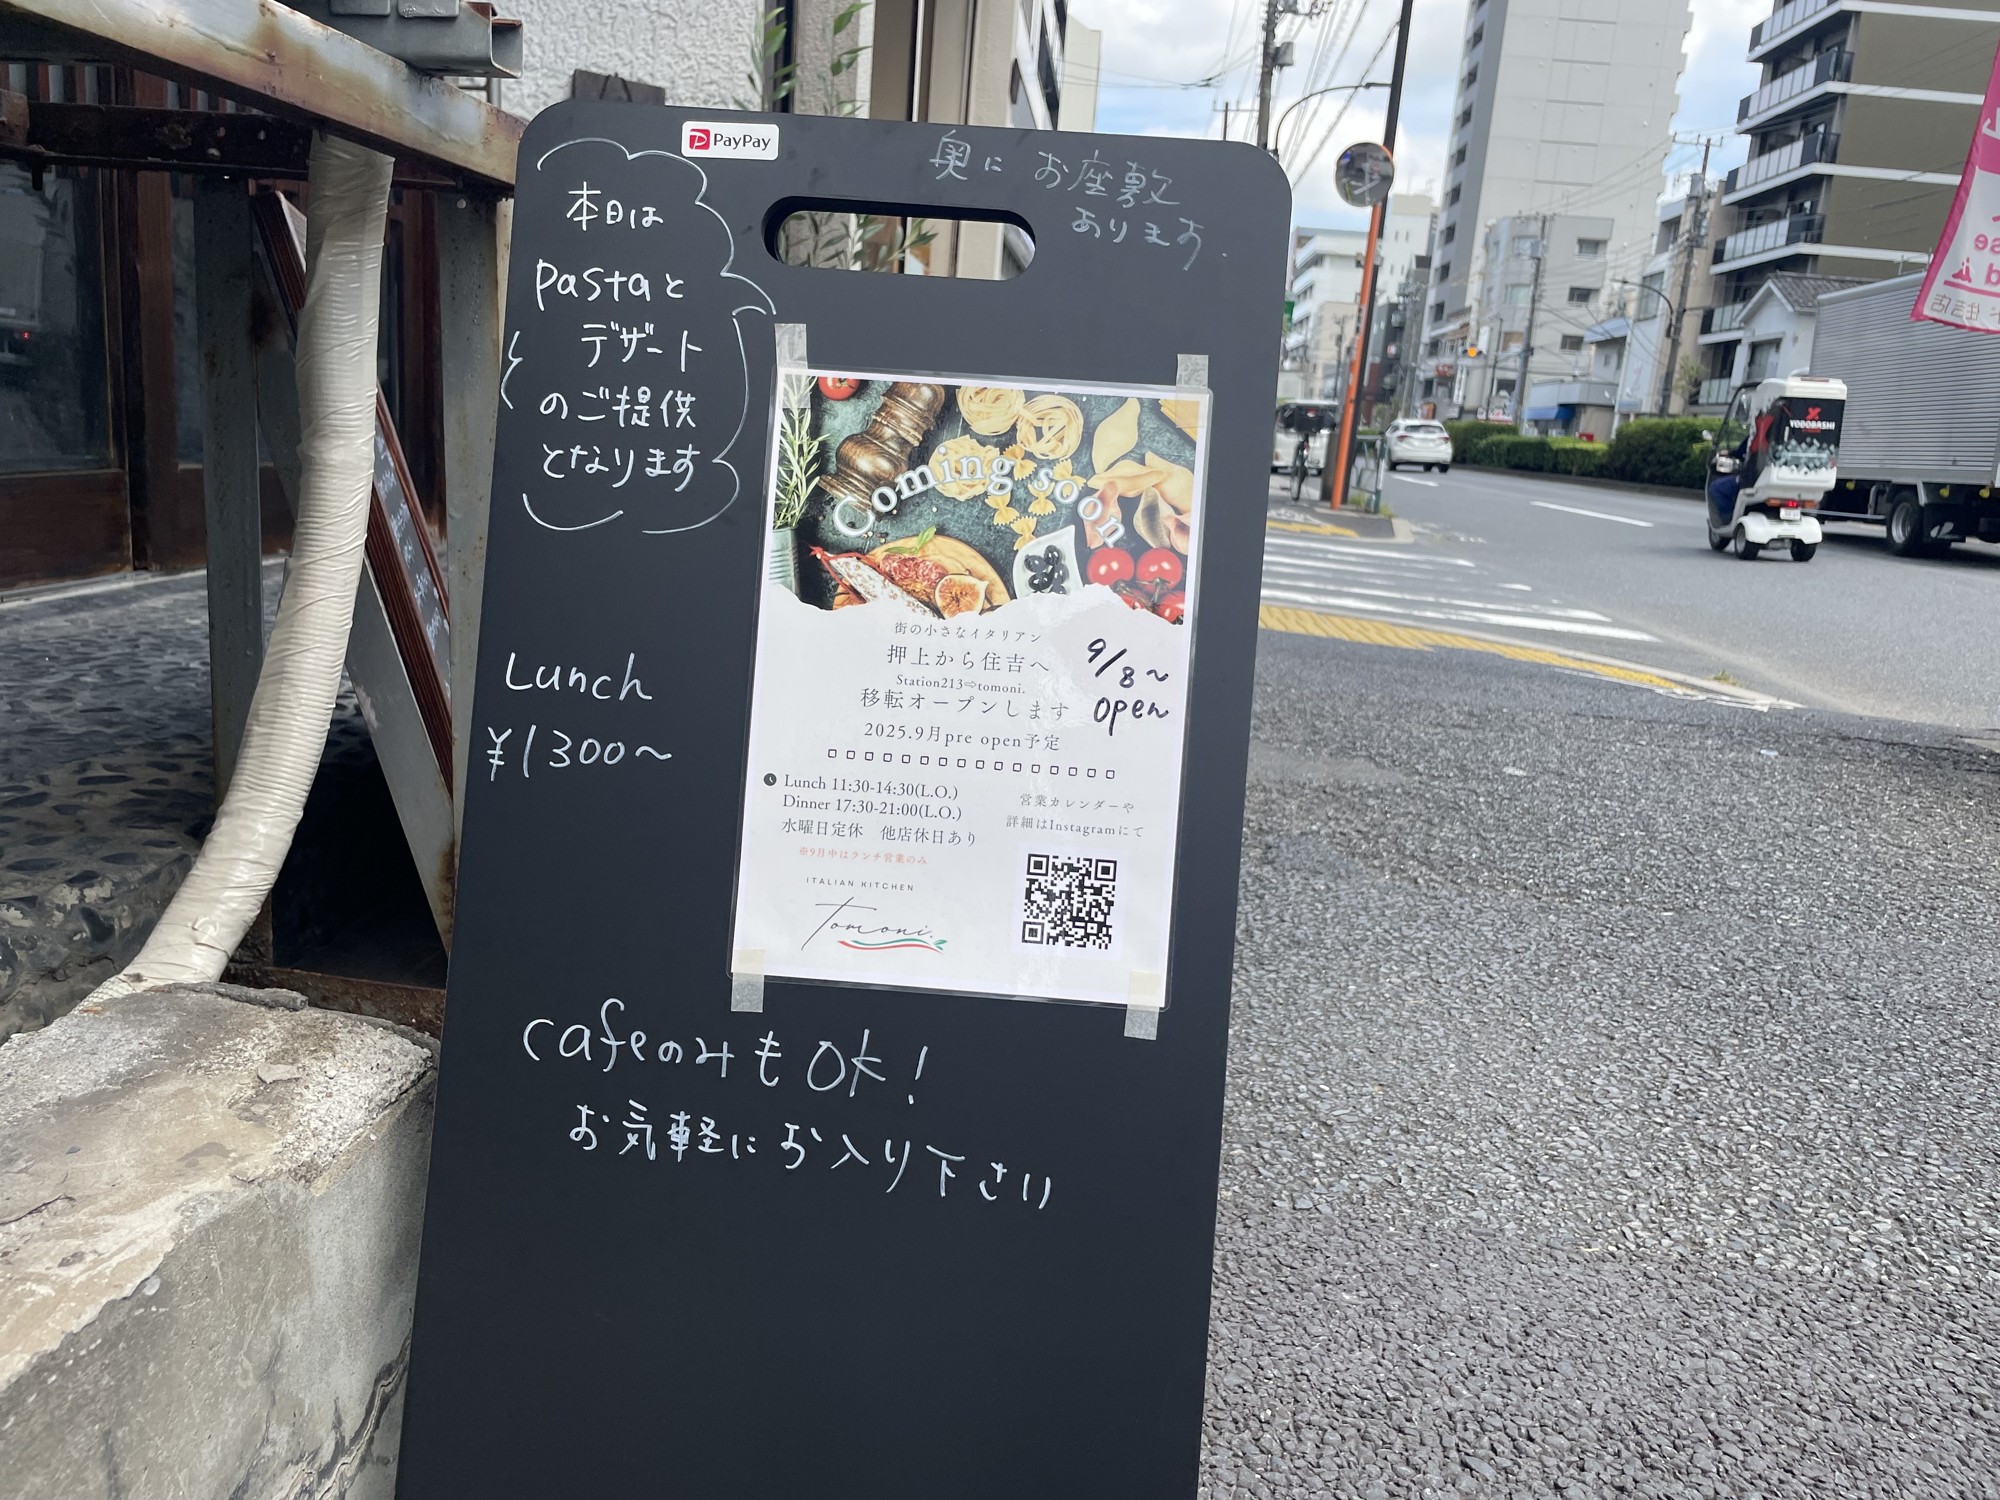 PayPay
奥にお座敷
あります.
本日は
pastaと
デザート
のご提供
となります
Lunch
¥1300〜
Coming soon
街の小さなイタリアン
押上から住吉へ
Station213⇨tomoni.
移転オープンします
2025.9月pre open予定
9/8〜
open
Lunch 11:30-14:30(L.O.)
Dinner 17:30-21:00(L.O.)
水曜日定休 他店休日あり
※9月中はランチ営業のみ
営業カレンダーや
詳細はInstagramにて
ITALIAN KITCHEN
Tomoni.
cafeのみもOK!
お気軽にお入り下さい
YODOBASHI